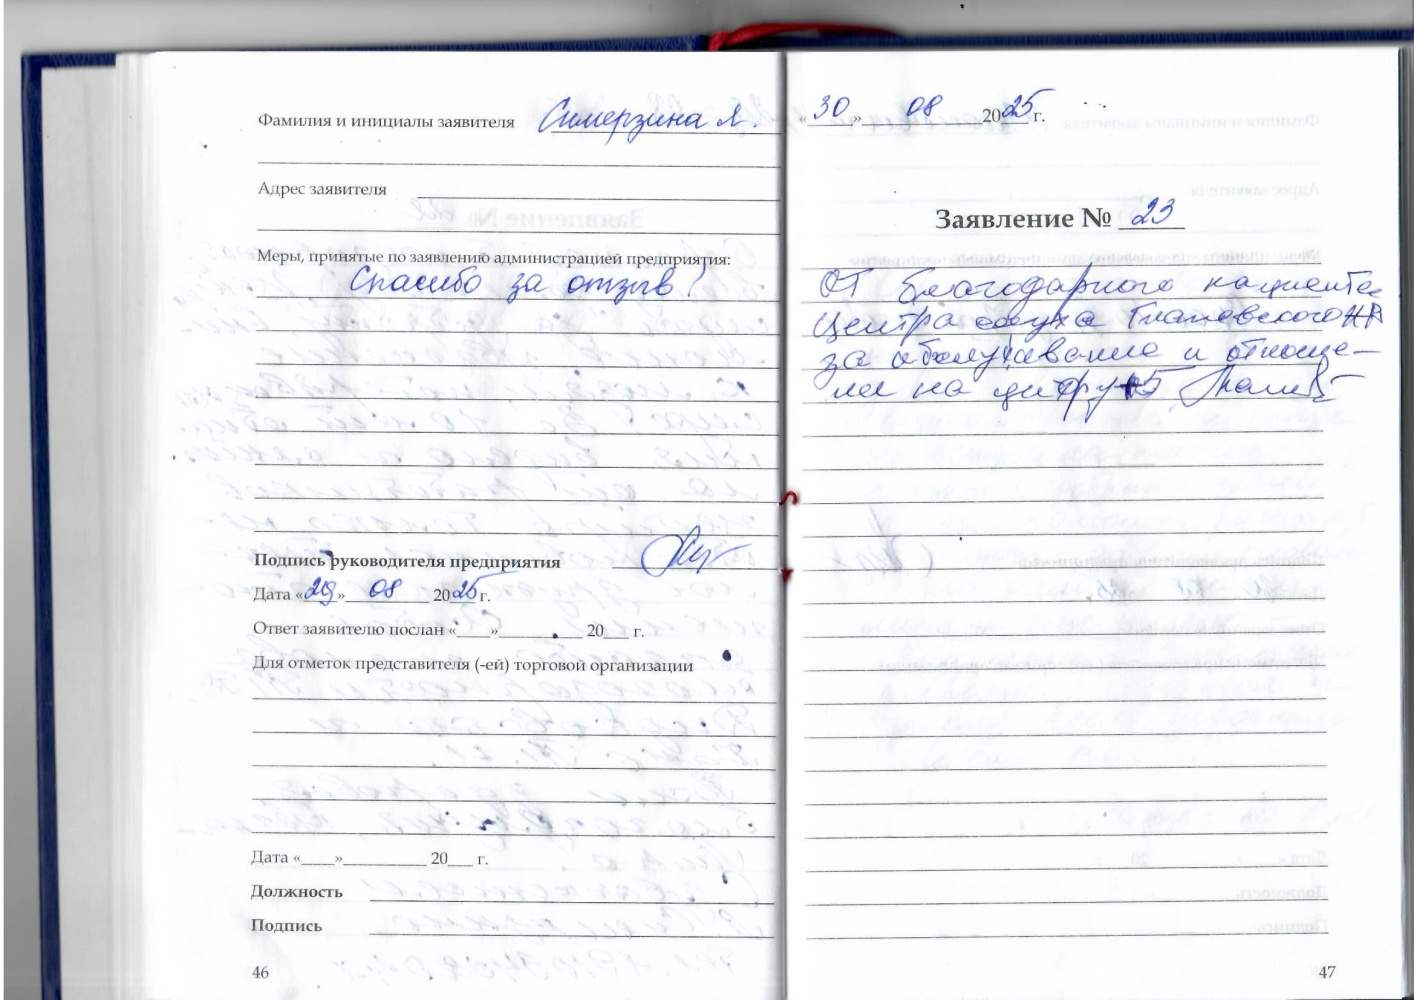 Фамилия и инициалы заявителя Симерзина Я.
Адрес заявителя
Меры, принятые по заявлению администрацией предприятия:
Спасибо за отзыв!
Подпись руководителя предприятия
Дата «29» 08 2025 г.
Ответ заявителю послан «____»__________ 20___ г.
Для отметок представителя (-ей) торговой организации
Дата «____»__________ 20___ г.
Должность
Подпись
46
«30» 08 2025 г.
Заявление № 23
от благодарного пациента
Центра слуха
за обслуживание и отноше-
на цифру 5
47